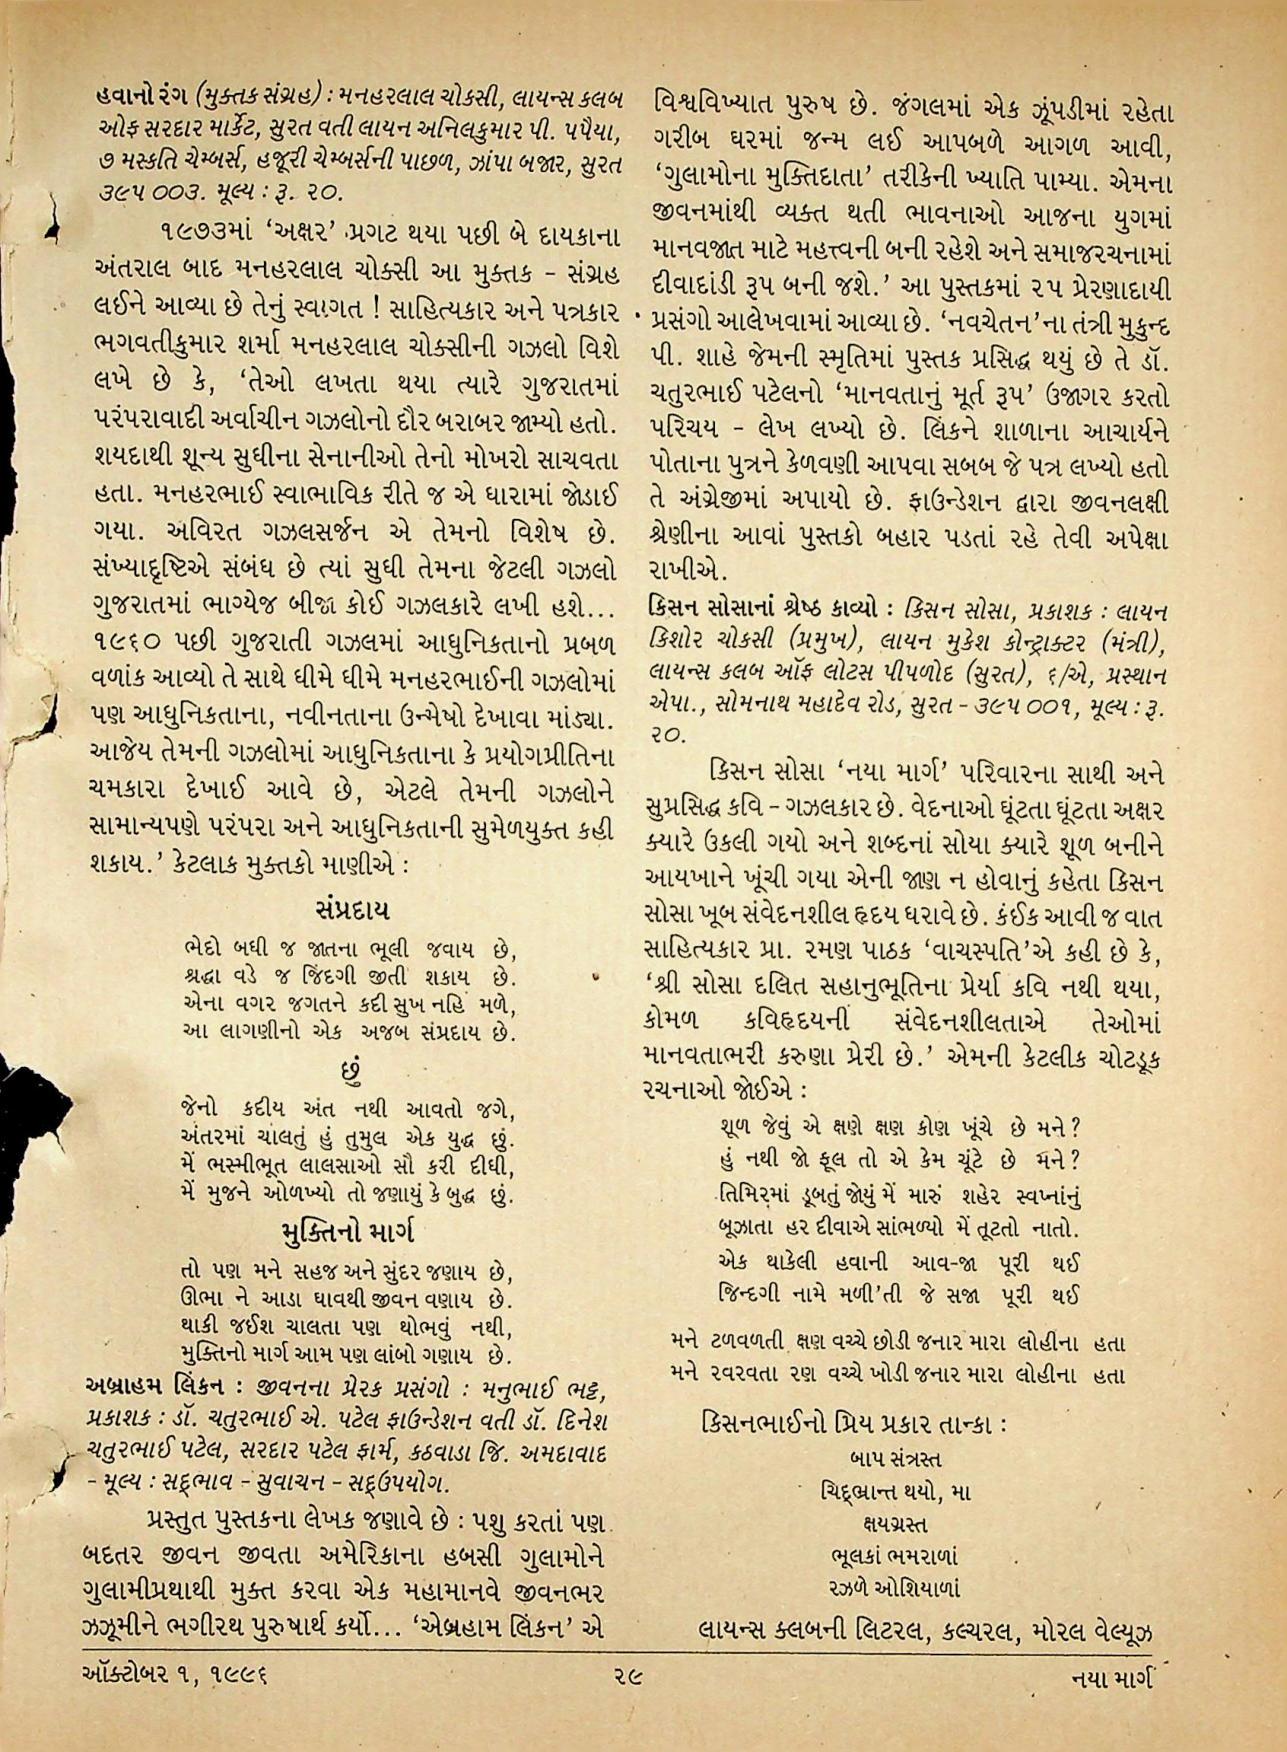 હવાનો રંગ (મુક્તક સંગ્રહ) : મનહરલાલ ચોકસી, લાયન્સ કલબ
ઓફ સરદાર માર્કેટ, સુરત વતી લાયન અનિલકુમાર પી. પપૈયા,
૭ મસ્કતિ ચેમ્બર્સ, હજૂરી ચેમ્બર્સની પાછળ, ઝાંપા બજાર, સુરત
૩૯૫ ૦૦૩. મૂલ્ય : રૂ. ૨૦.
૧૯૭૩માં ‘અક્ષર’ પ્રગટ થયા પછી બે દાયકાના
અંતરાલ બાદ મનહરલાલ ચોક્સી આ મુક્તક - સંગ્રહ
લઈને આવ્યા છે તેનું સ્વાગત ! સાહિત્યકાર અને પત્રકાર
ભગવતીકુમાર શર્મા મનહરલાલ ચોક્સીની ગઝલો વિશે
લખે છે કે, ‘તેઓ લખતા થયા ત્યારે ગુજરાતમાં
પરંપરાવાદી અર્વાચીન ગઝલોનો દૌર બરાબર જામ્યો હતો.
શયદાથી શૂન્ય સુધીના સેનાનીઓ તેનો મોખરો સાચવતા
હતા. મનહરભાઈ સ્વાભાવિક રીતે જ એ ધારામાં જોડાઈ
ગયા. અવિરત ગઝલસર્જન એ તેમનો વિશેષ છે.
સંખ્યાદૃષ્ટિએ સંબંધ છે ત્યાં સુધી તેમના જેટલી ગઝલો
ગુજરાતમાં ભાગ્યેજ બીજા કોઈ ગઝલકારે લખી હશે...
૧૯૬૦ પછી ગુજરાતી ગઝલમાં આધુનિકતાનો પ્રબળ
વળાંક આવ્યો તે સાથે ધીમે ધીમે મનહરભાઈની ગઝલોમાં
પણ આધુનિકતાના, નવીનતાના ઉન્મેષો દેખાવા માંડ્યા.
આજેય તેમની ગઝલોમાં આધુનિકતાના કે પ્રયોગપ્રીતિના
ચમકારા દેખાઈ આવે છે, એટલે તેમની ગઝલોને
સામાન્યપણે પરંપરા અને આધુનિકતાની સુમેળયુક્ત કહી
શકાય.’ કેટલાક મુક્તકો માણીએ :
સંપ્રદાય
ભેદો બધી જ જાતના ભૂલી જવાય છે,
શ્રદ્ધા વડે જ જિંદગી જીતી શકાય છે.
એના વગર જગતને કદી સુખ નહિ મળે,
આ લાગણીનો એક અજબ સંપ્રદાય છે.
છું
જેનો કદીય અંત નથી આવતો જગે,
અંતરમાં ચાલતું હું તુમુલ એક યુદ્ધ છું.
મેં ભસ્મીભૂત લાલસાઓ સૌ કરી દીધી,
મેં મુજને ઓળખ્યો તો જણાયું કે બુદ્ધ છું.
મુક્તિનો માર્ગ
તો પણ મને સહજ અને સુંદર જણાય છે,
ઊભા ને આડા ઘાવથી જીવન વણાય છે.
થાકી જઈશ ચાલતા પણ થોભવું નથી,
મુક્તિનો માર્ગ આમ પણ લાંબો ગણાય છે.
અબ્રાહમ લિંકન : જીવનના પ્રેરક પ્રસંગો : મનુભાઈ ભટ્ટ,
પ્રકાશક : ડૉ. ચતુરભાઈ એ. પટેલ ફાઉન્ડેશન વતી ડૉ. દિનેશ
ચતુરભાઈ પટેલ, સરદાર પટેલ ફાર્મ, કઠવાડા જિ. અમદાવાદ
- મૂલ્ય : સદ્ભાવ - સુવાચન - સદ્ઉપયોગ.
પ્રસ્તુત પુસ્તકના લેખક જણાવે છે : પશુ કરતાં પણ
બદતર જીવન જીવતા અમેરિકાના હબસી ગુલામોને
ગુલામીપ્રથાથી મુક્ત કરવા એક મહામાનવે જીવનભર
ઝઝૂમીને ભગીરથ પુરુષાર્થ કર્યો... ‘એબ્રહામ લિંકન’ એ
વિશ્વવિખ્યાત પુરુષ છે. જંગલમાં એક ઝૂંપડીમાં રહેતા
ગરીબ ઘરમાં જન્મ લઈ આપબળે આગળ આવી,
‘ગુલામોના મુક્તિદાતા’ તરીકેની ખ્યાતિ પામ્યા. એમના
જીવનમાંથી વ્યક્ત થતી ભાવનાઓ આજના યુગમાં
માનવજાત માટે મહત્ત્વની બની રહેશે અને સમાજરચનામાં
દીવાદાંડી રૂપ બની જશે.’ આ પુસ્તકમાં ૨૫ પ્રેરણાદાયી
પ્રસંગો આલેખવામાં આવ્યા છે. ‘નવચેતન’ના તંત્રી મુકુન્દ
પી. શાહે જેમની સ્મૃતિમાં પુસ્તક પ્રસિદ્ધ થયું છે તે ડૉ.
ચતુરભાઈ પટેલનો ‘માનવતાનું મૂર્ત રૂપ’ ઉજાગર કરતો
પરિચય - લેખ લખ્યો છે. લિંકને શાળાના આચાર્યને
પોતાના પુત્રને કેળવણી આપવા સબબ જે પત્ર લખ્યો હતો
તે અંગ્રેજીમાં અપાયો છે. ફાઉન્ડેશન દ્વારા જીવનલક્ષી
શ્રેણીના આવાં પુસ્તકો બહાર પડતાં રહે તેવી અપેક્ષા
રાખીએ.
કિસન સોસાનાં શ્રેષ્ઠ કાવ્યો : કિસન સોસા, પ્રકાશક : લાયન
કિશોર ચોકસી (પ્રમુખ), લાયન મુકેશ કોન્ટ્રાક્ટર (મંત્રી),
લાયન્સ કલબ ઑફ લોટસ પીપળોદ (સુરત), ૬/એ, પ્રસ્થાન
એપા., સોમનાથ મહાદેવ રોડ, સુરત - ૩૯૫ ૦૦૧, મૂલ્ય : રૂ.
૨૦.
કિસન સોસા ‘નયા માર્ગ’ પરિવારના સાથી અને
સુપ્રસિદ્ધ કવિ - ગઝલકાર છે. વેદનાઓ ઘૂંટતા ઘૂંટતા અક્ષર
ક્યારે ઉકલી ગયો અને શબ્દનાં સોયા ક્યારે શૂળ બનીને
આયખાને ખૂંચી ગયા એની જાણ ન હોવાનું કહેતા કિસન
સોસા ખૂબ સંવેદનશીલ હૃદય ધરાવે છે. કંઈક આવી જ વાત
સાહિત્યકાર પ્રા. રમણ પાઠક ‘વાચસ્પતિ’એ કહી છે કે,
‘શ્રી સોસા દલિત સહાનુભૂતિના પ્રેર્યા કવિ નથી થયા,
કોમળ કવિહૃદયની સંવેદનશીલતાએ તેઓમાં
માનવતાભરી કરુણા પ્રેરી છે.’ એમની કેટલીક ચોટડૂક
રચનાઓ જોઈએ :
શૂળ જેવું એ ક્ષણે ક્ષણ કોણ ખૂંચે છે મને ?
હું નથી જો ફૂલ તો એ કેમ ચૂંટે છે મને ?
તિમિરમાં ડૂબતું જોયું મેં મારું શહેર સ્વપ્નાંનું
બૂઝાતા હર દીવાએ સાંભળ્યો મેં તૂટતો નાતો.
એક થાકેલી હવાની આવ-જા પૂરી થઈ
જિન્દગી નામે મળી’તી જે સજા પૂરી થઈ
મને ટળવળતી ક્ષણ વચ્ચે છોડી જનાર મારા લોહીના હતા
મને રવરવતા રણ વચ્ચે ખોડી જનાર મારા લોહીના હતા
કિસનભાઈનો પ્રિય પ્રકાર તાન્કા :
બાપ સંત્રસ્ત
ચિદ્ભ્રાન્ત થયો, મા
ક્ષયગ્રસ્ત
ભૂલકાં ભમરાળાં
રઝળે ઓશિયાળાં
લાયન્સ ક્લબની લિટરલ, કલ્ચરલ, મોરલ વેલ્યૂઝ
ઑક્ટોબર ૧, ૧૯૯૬
૨૯
નયા માર્ગ